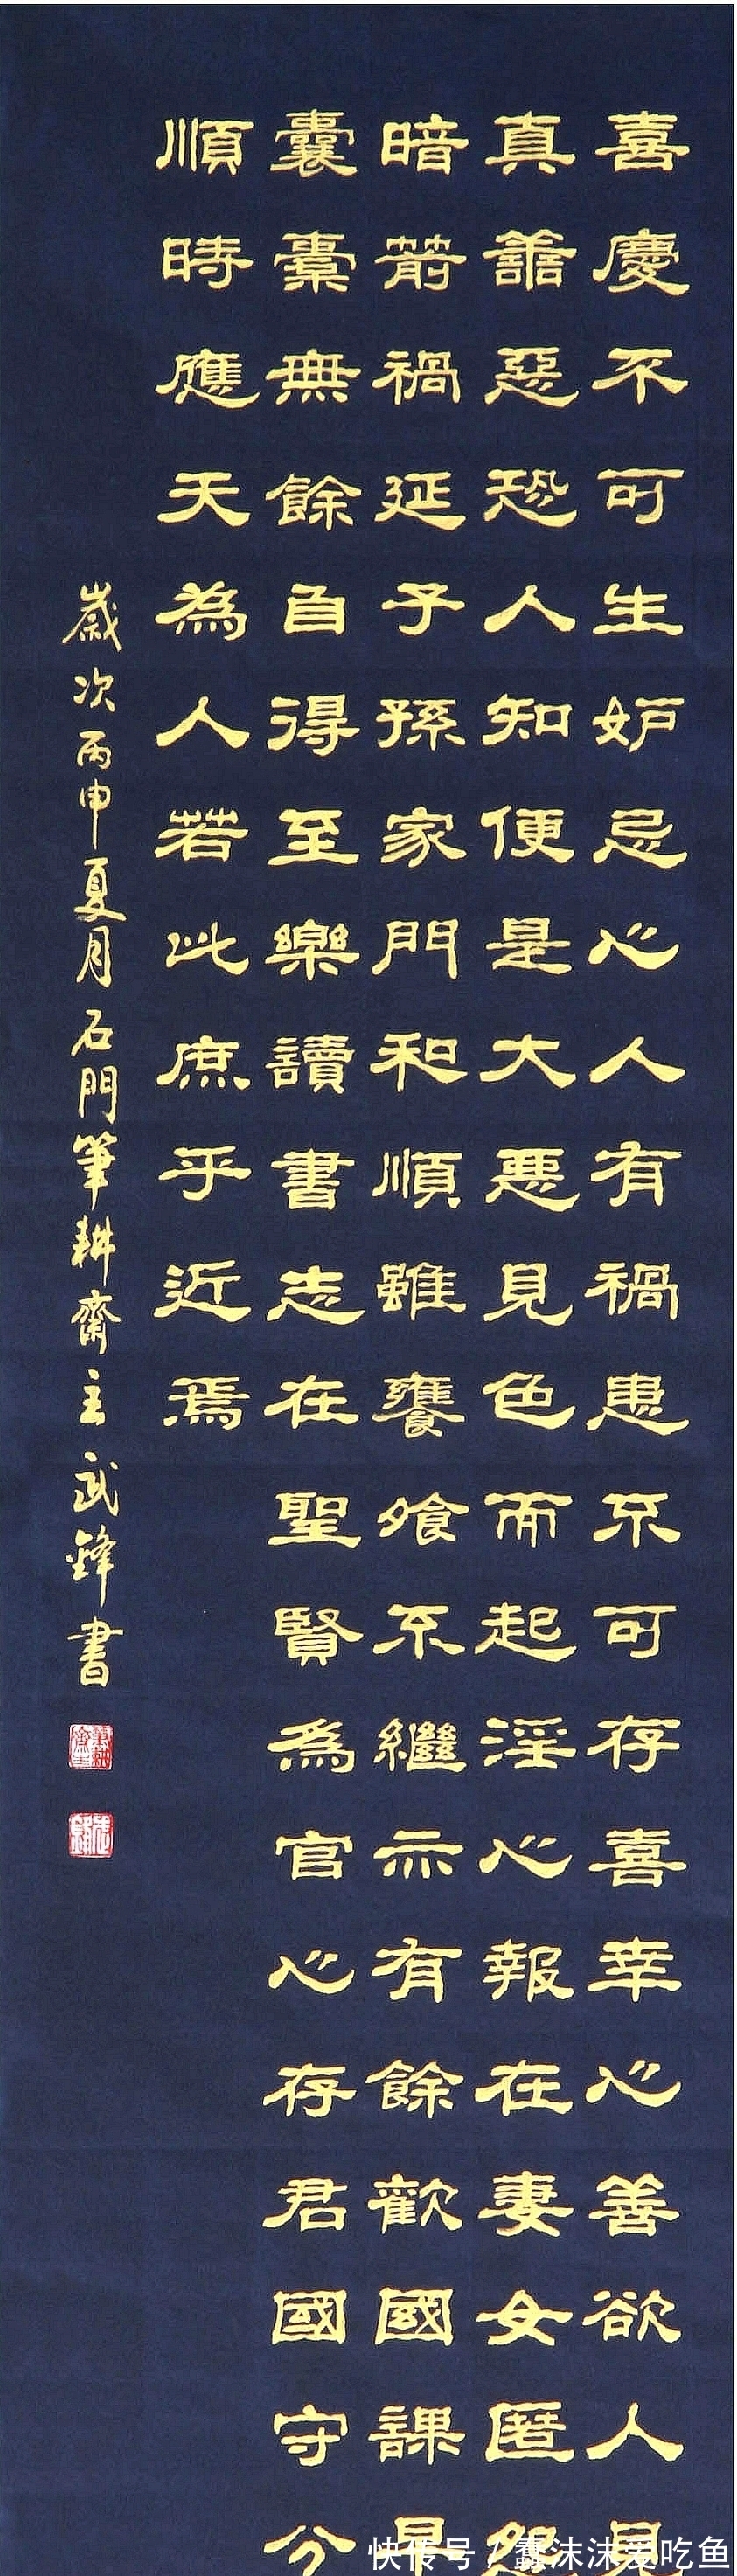 喜慶不可生妒忌心人有禍患不可存喜幸心善欲人見
真善惡恐人知便是大惡見色而起淫心報在妻女匿怨
暗箭禍延子孫家門和順雖饔飧不繼亦有餘歡國課早
囊橐無餘自得至樂讀書志在聖賢為官心存君國守分
順時應天為人若此庶乎近焉
歲次丙申夏月石門筆耕齋主武鋒書
快传号 / 蠢沫沫爱吃鱼